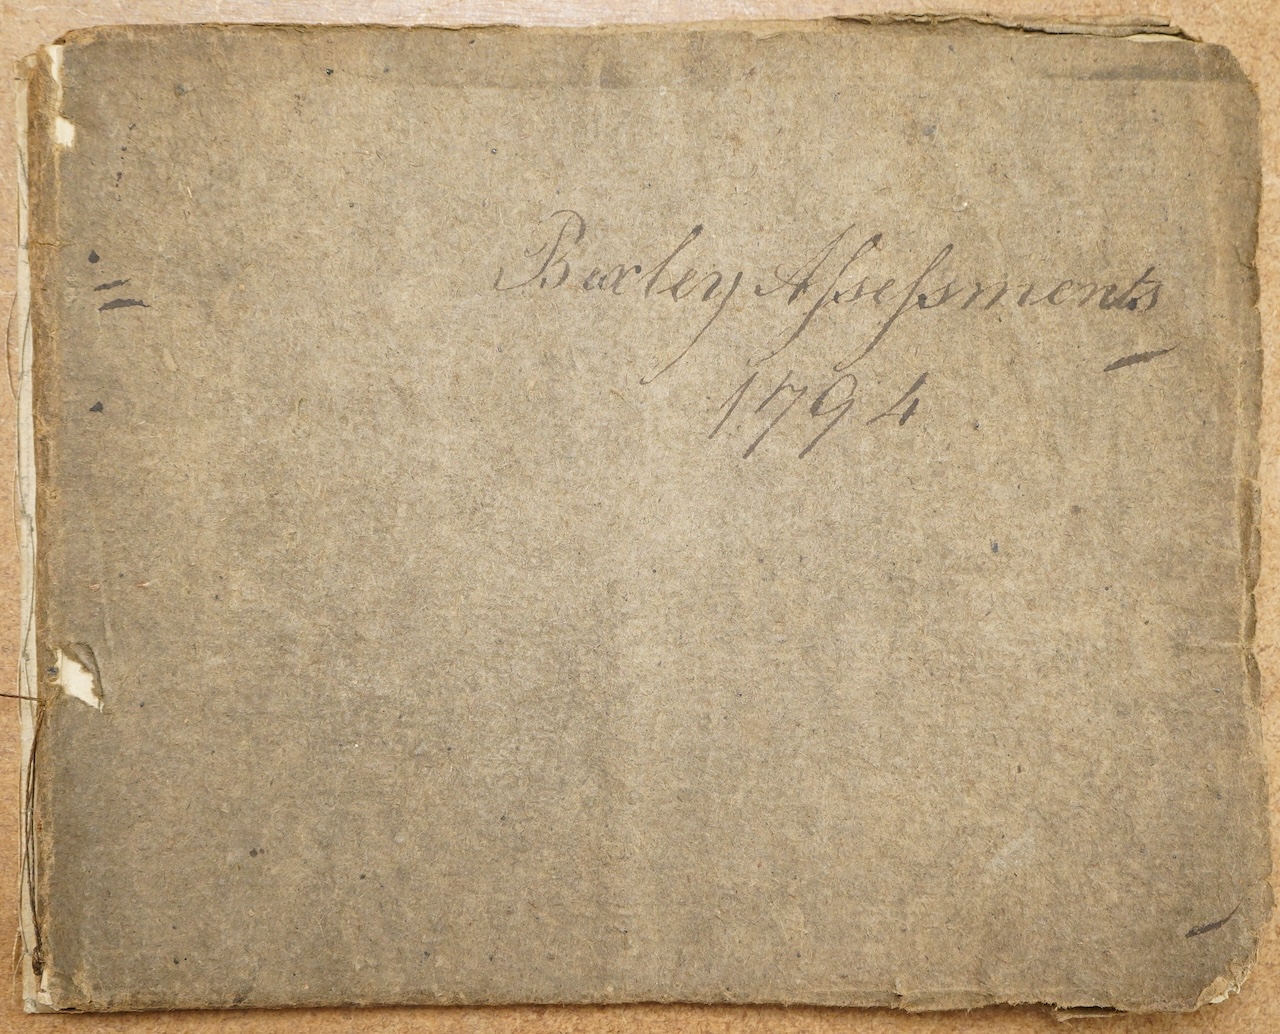 Bexley Aſseſsments
1794